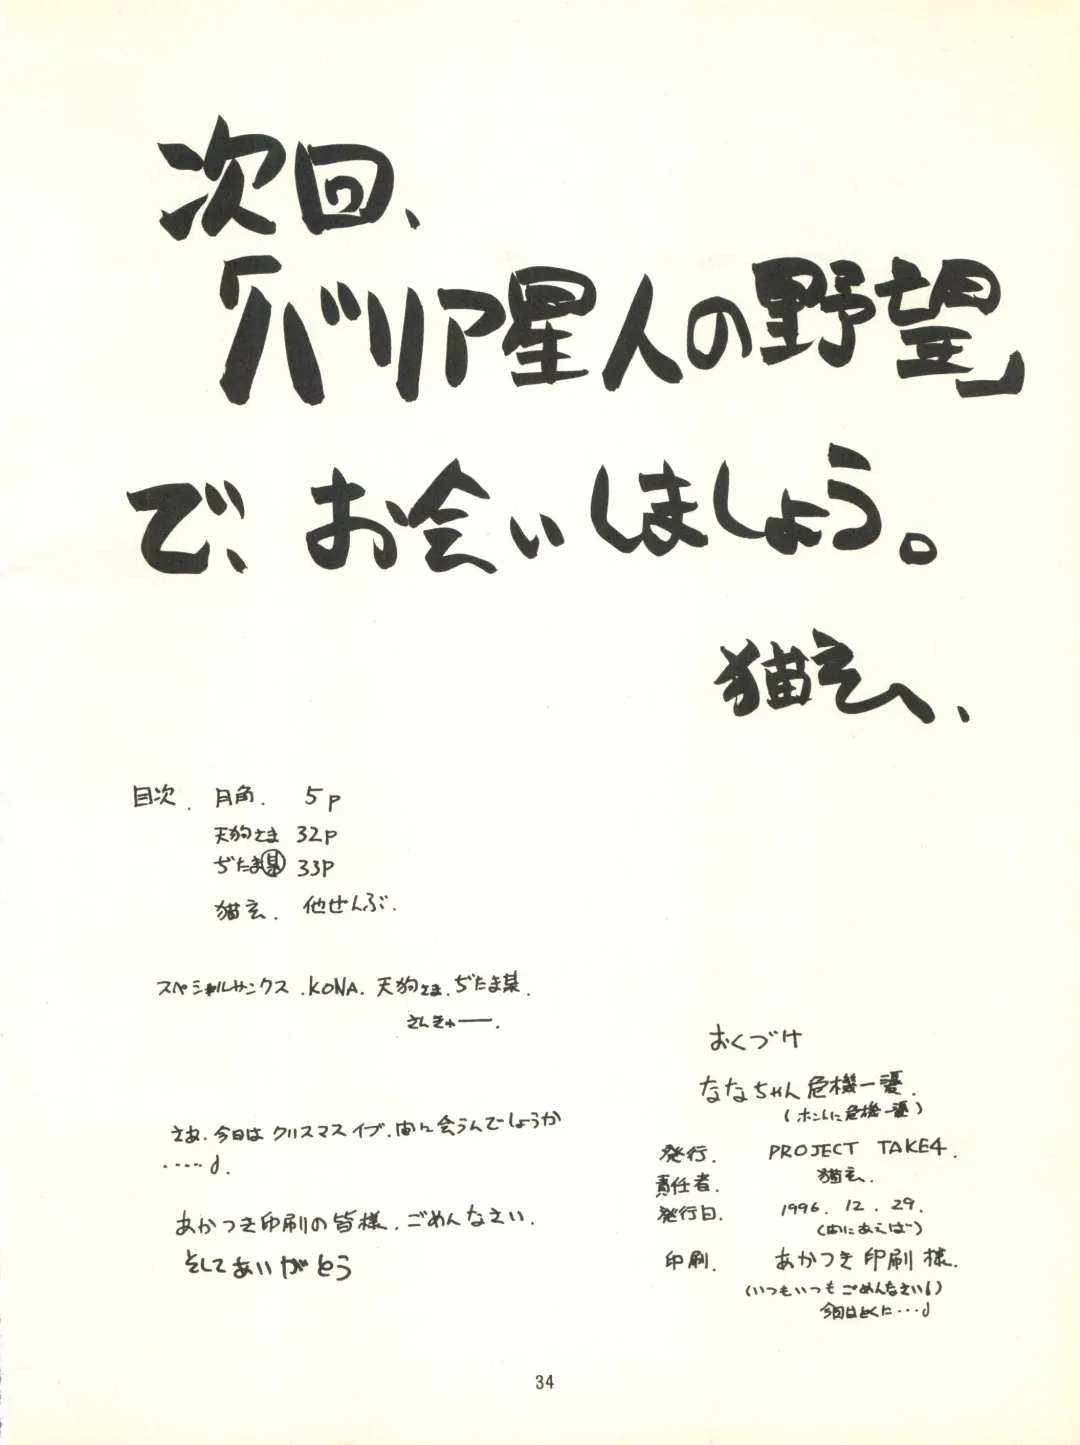 次回、
「バリア星人の野望」
で、お会いしましょう。
猫玄へ、
目次. 月角. 5p
天狗さま 32P
ぢたま某 33P
猫玄. 他ぜんぶ.
スペシャルサンクス.KONA.天狗さま.ぢたま某.
さんきゅ——.
さあ.今日はクリスマスイブ.間に会うんでしょうか
・・・・・♂.
あかつき印刷の皆様.ごめんなさい.
そしてありがとう
おくづけ
ななちゃん危機一髪.
(ホントに危機一髪)
発行. PROJECT TAKE4.
責任者. 猫玄.
発行日. 1996.12.29.
(間にあえば)
印刷. あかつき印刷様.
(いつもいつもごめんなさい♂)
今回はとくに・・・♂
34